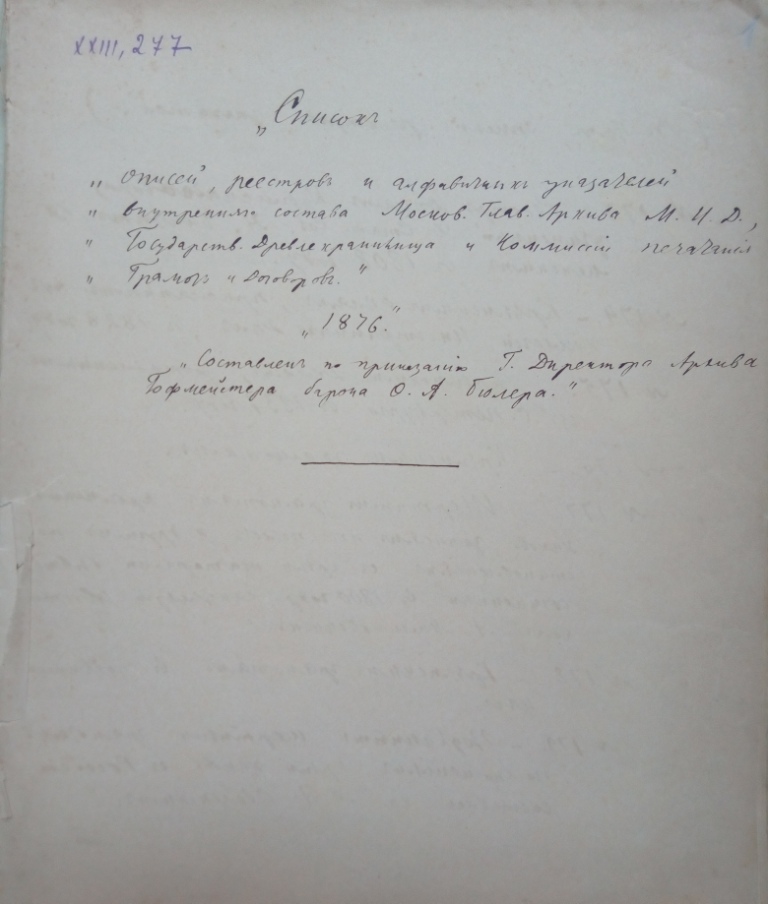 XXIII, 277
1
„Списокъ
„ описей, реестровъ и алфавитныхъ указателей
„ внутренняго состава Москов. Глав. Архива М. И. Д.,
„ Государств. Древлехранилища и Коммиссіи печатанія
„ Грамотъ и Договоровъ."
„1876."
„Составленъ по приказанію Г. Директора Архива
Гофмейстера барона Ѳ. А. Бюлера."